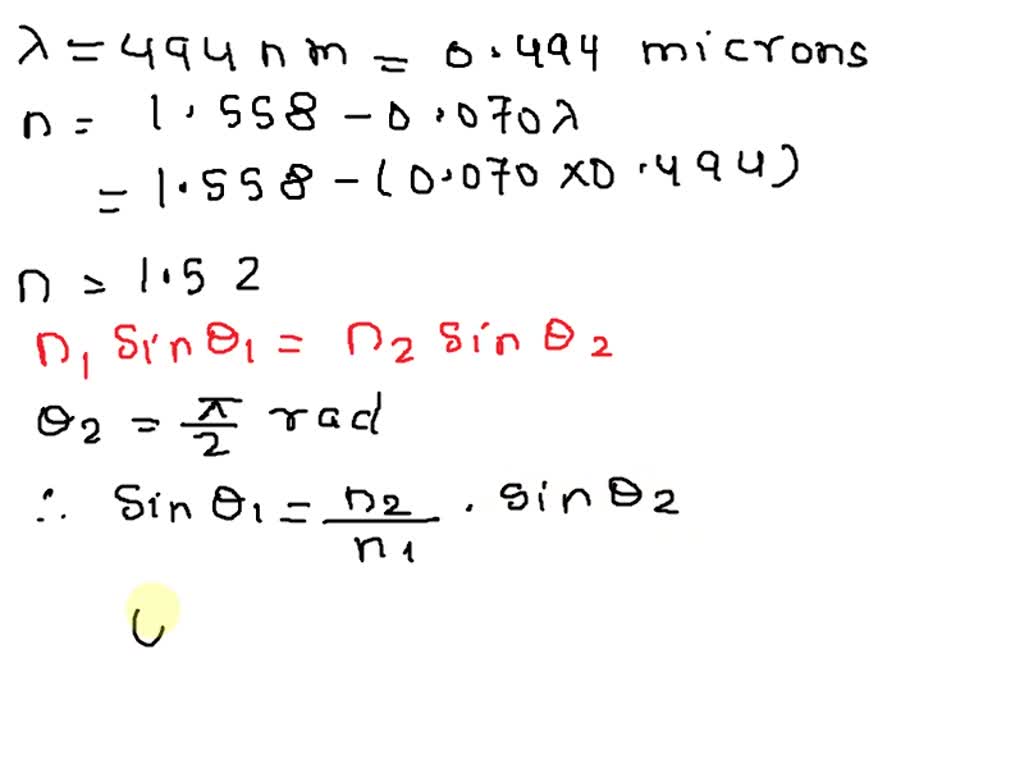 λ = 494 nm = 0.494 microns
n = 1.558 - 0.070λ
= 1.558 - (0.070 x0.494)
n = 1.52
n₁ sinθ₁ = n₂ sinθ₂
θ₂ = π/2 rad
∴ sinθ₁ = n₂/n₁ . sinθ₂